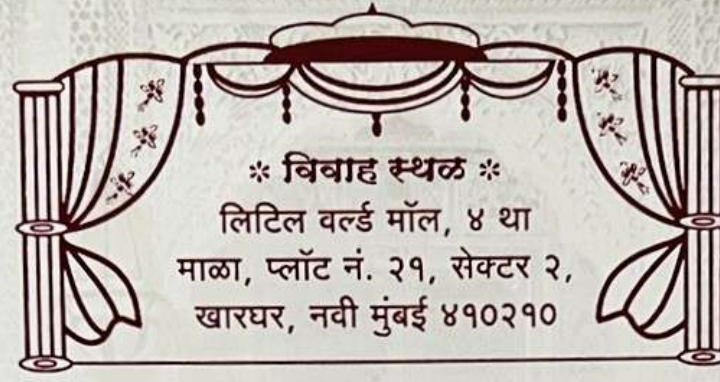 * विवाह स्थळ *
लिटिल वर्ल्ड मॉल, ४ था
माळा, प्लॉट नं. २१, सेक्टर २,
खारघर, नवी मुंबई ४१०२१०